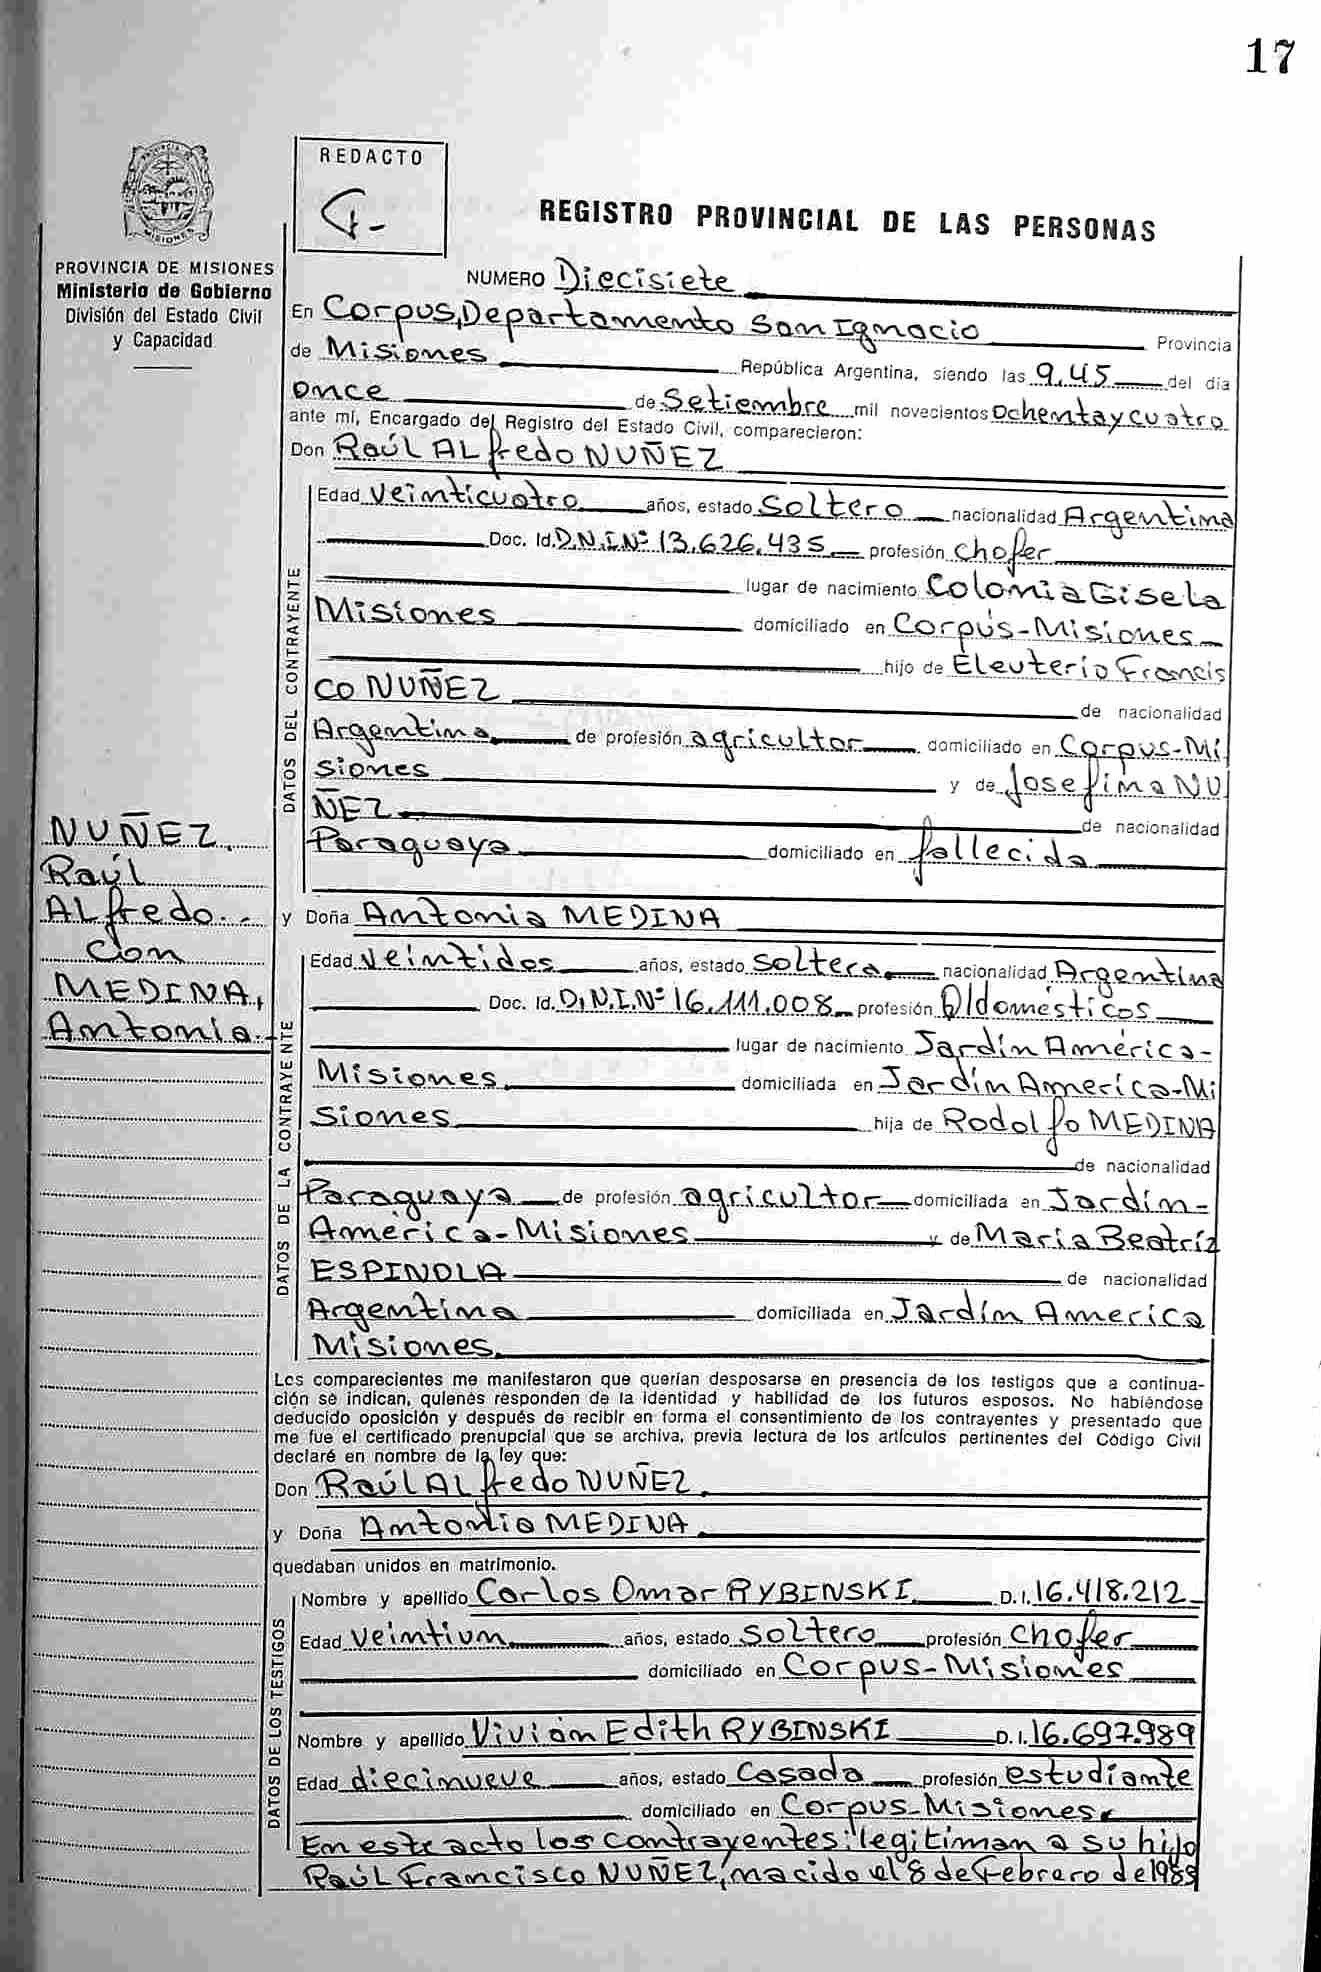 17
REDACTO
REGISTRO PROVINCIAL DE LAS PERSONAS
MISIONES
PROVINCIA DE MISIONES
Ministerio de Gobierno
División del Estado Civil
y Capacidad
NUMERO Diecisiete
En Corpus, Departamento San Ignacio Provincia
de Misiones República Argentina, siendo las 9,45 del día
once de Setiembre mil novecientos Ochenta y cuatro
ante mí, Encargado del Registro del Estado Civil, comparecieron:
Don Raúl ALfredo NUÑEZ
DATOS DEL CONTRAYENTE
Edad Veinticuatro años, estado Soltero nacionalidad Argentina
Doc. Id. D.N.I.Nº 13.626.435 profesión Chofer
lugar de nacimiento Colonia Gisela
Misiones domiciliado en Corpús-Misiones
hijo de Eleuterio Francis
co NUÑEZ de nacionalidad
Argentina de profesión agricultor domiciliado en Corpus-Mi
siones y de Josefina NU
ÑEZ de nacionalidad
Paraguaya domiciliado en fallecida
NUÑEZ.
Raúl
ALfredo.-
Con
MEDINA,
Antonia.-
y Doña Antonia MEDINA
DATOS DE LA CONTRAYENTE
Edad Veintidos años, estado Soltera nacionalidad Argentina
Doc. Id. D.N.I.Nº 16.111.008 profesión Q/domésticos
lugar de nacimiento Jardín América-
Misiones domiciliada en Jardín America-Mi
siones hija de Rodolfo MEDINA
de nacionalidad
Paraguaya de profesión agricultor domiciliada en Jardín-
América-Misiones y de Maria Beatríz
ESPINDLA de nacionalidad
Argentina domiciliada en Jardín America
Misiones.
Los comparecientes me manifestaron que querían desposarse en presencia de los testigos que a continua-
ción se indican, quienes responden de la identidad y habilidad de los futuros esposos. No habiéndose
deducido oposición y después de recibir en forma el consentimiento de los contrayentes y presentado que
me fue el certificado prenupcial que se archiva, previa lectura de los artículos pertinentes del Código Civil
declaré en nombre de la ley que:
Don Raúl ALfredo NUÑEZ.
y Doña Antonia MEDINA.
quedaban unidos en matrimonio.
DATOS DE LOS TESTIGOS
Nombre y apellido Carlos Omar RYBINSKI. D.I. 16.418.212
Edad Veintiun años, estado Soltero profesión Chofer
domiciliado en Corpus-Misiones
Nombre y apellido Vivián Edith RYBINSKI D.I. 16.697.989
Edad diecinueve años, estado Casada profesión estudiante
domiciliado en Corpus-Misiones
En este acto los contrayentes: legitiman a su hijo
Raúl Francisco NUÑEZ, nacido el 8 de Febrero de